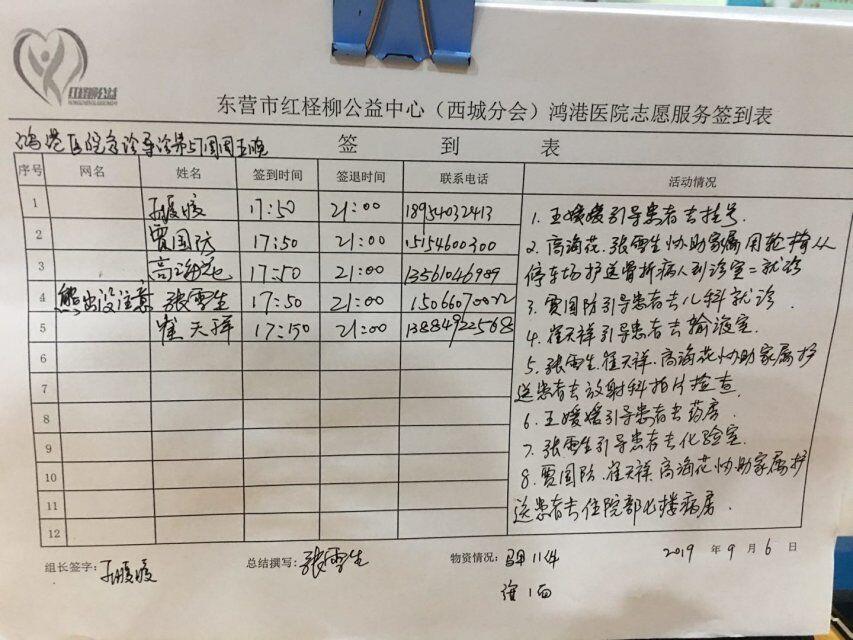 红柽柳公益
东营市红柽柳公益中心（西城分会）鸿港医院志愿服务签到表
鸿港医院急诊导诊
签 到 表
序号 网名 姓名 签到时间 签退时间 联系电话 活动情况
1 17:50 21:00 18954032413
2 贾国防 17:50 21:00 15154600300
3 高海花 17:50 21:00 13561046989
4 熊出没注意 张雪生 17:50 21:00
5 崔天祥 17:50 21:00 13884922568
6
7
8
9
10
11
12
1. 王媛媛引导患者去挂号.
2. 高海花.张雪生协助家属用轮椅从
停车场护送骨折病人到诊室二就诊
3. 贾国防引导患者去儿科就诊.
4. 崔天祥引导患者去输液室.
5. 张雪生.崔天祥.高海花协助家属护
送患者去放射科拍片检查.
6. 王媛媛引导患者去药房.
7. 张雪生引导患者去化验室.
8. 贾国防.崔天祥.高海花协助家属护
送患者去住院部七楼病房.
组长签字: 总结撰写: 张雪生 物资情况: 11件
2019 年 9 月 6 日